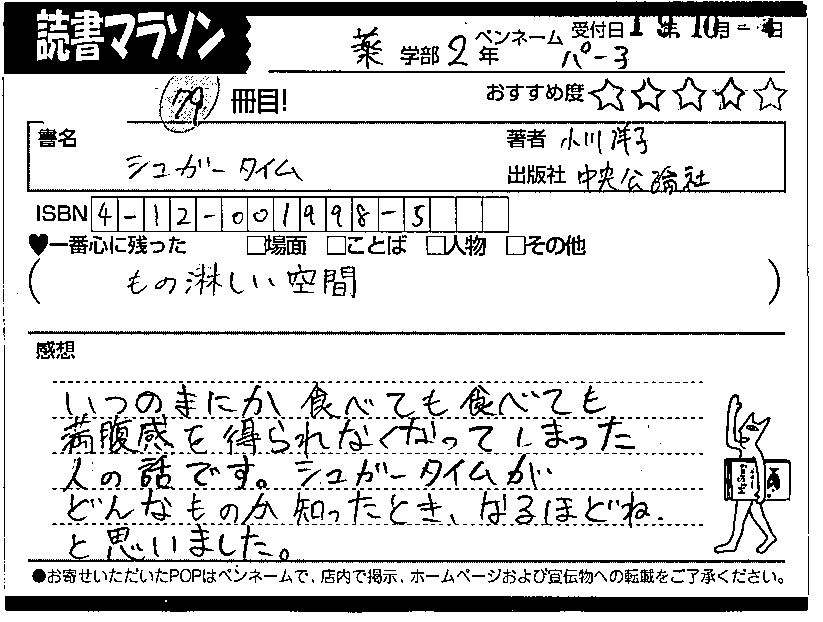 読書マラソン
薬 学部 2 年 ペンネーム パー子 受付日 19年10月-4日
79 冊目! おすすめ度 ☆☆☆☆☆
書名 シュガータイム
著者 小川洋子
出版社 中央公論社
ISBN 4-12-001998-5
♥一番心に残った □場面 □ことば □人物 □その他
(もの淋しい空間)
感想
いつのまにか食べても食べても
満腹感を得られなくなってしまった
人の話です。シュガータイムが
どんなものか知ったとき、なるほどね。
と思いました。
●お寄せいただいたPOPはペンネームで、店内で掲示、ホームページおよび宣伝物への転載をご了承ください。